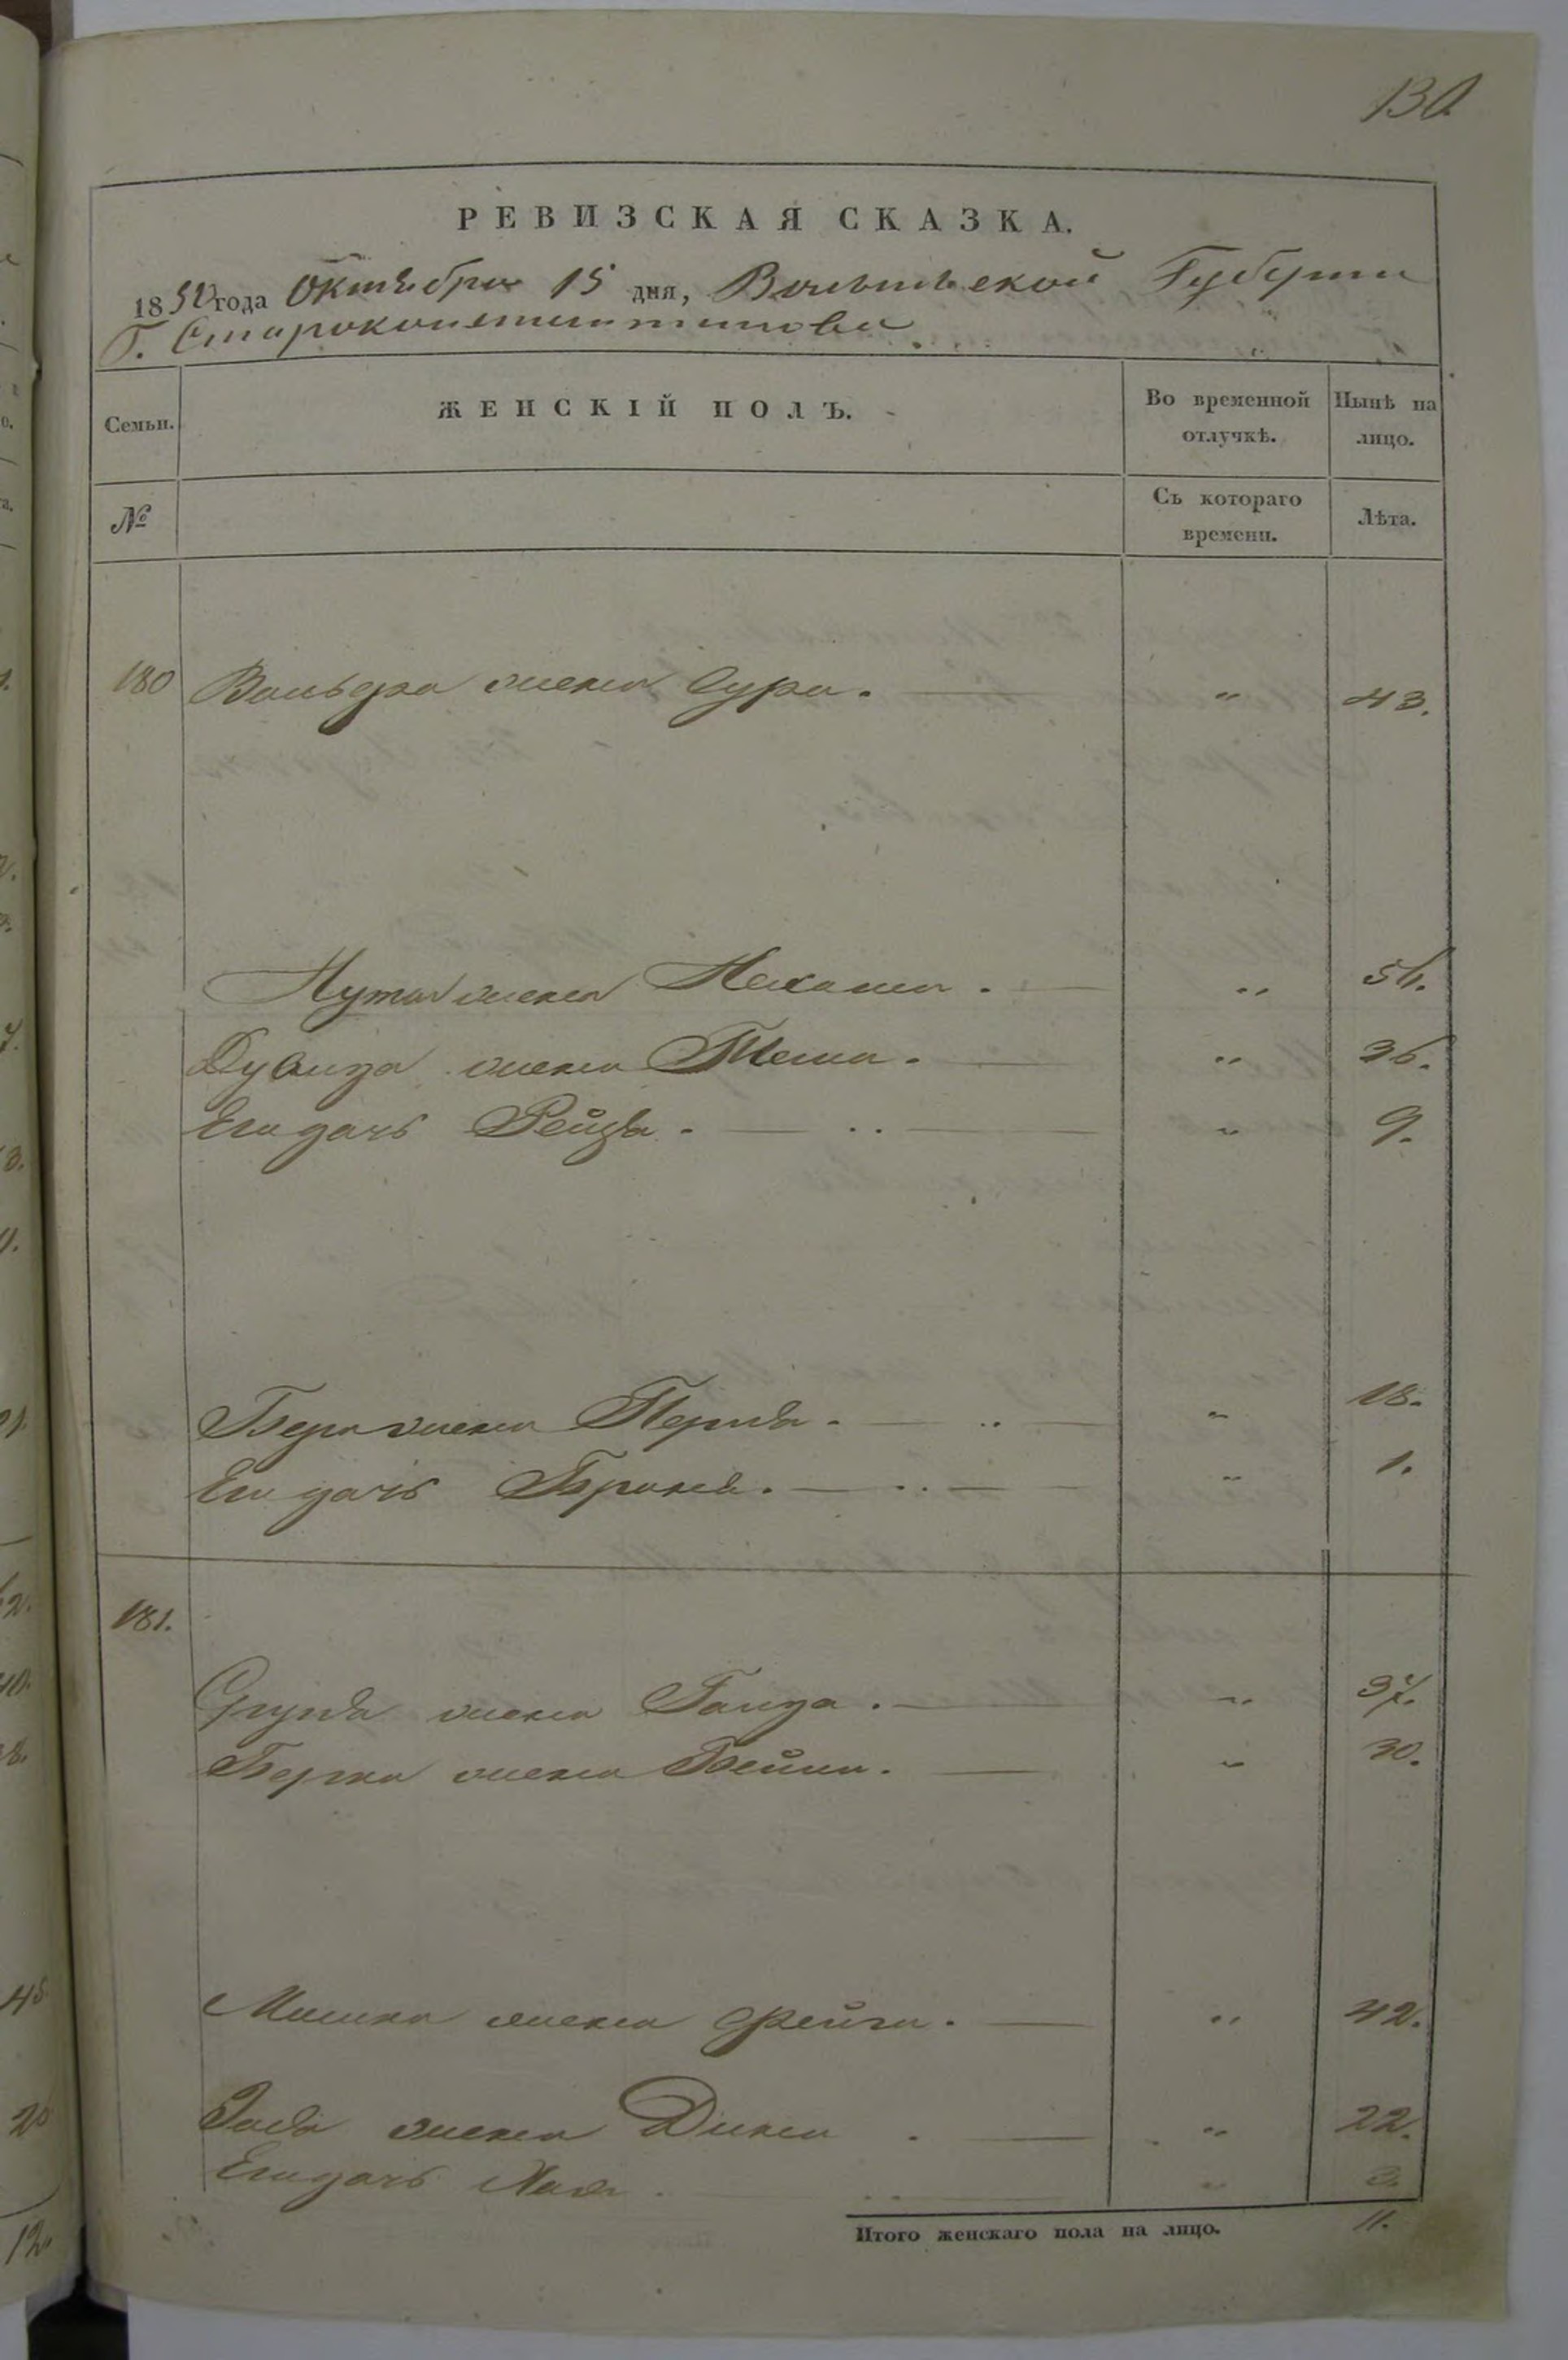 130
РЕВИЗСКАЯ СКАЗКА.
1850 года Октября 15 дня, Волынской Губернии
Г. Староконстантинова
Семьи. ЖЕНСКІЙ ПОЛЪ. Во временной отлучкѣ. Нынѣ на лицо.
№ Съ котораго времени. Лѣта.
180 Вольфа жена Сура. — " 43.
Нута жена Нехама. — " 56.
Дувида жена — " 36.
Его дочь Рейзя. — " 9.
Бера жена Перля. — " 18.
Его дочь Броня. — " 1.
181.
Сруля жена Гайда. — " 37.
Берка жена Бейла. — " 30.
Мошка жена Фейга. — " 42.
жена Дина. — " 22.
Его дочь — "
Итого женскаго пола на лицо. 11.